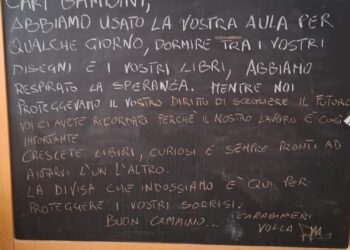 CARI BAMBINI,
ABBIAMO USATO LA VOSTRA AULA PER
QUALCHE GIORNO, DORMIRE TRA I VOSTRI
DISEGNI E I VOSTRI LIBRI, ABBIAMO
RESPIRATO LA SPERANZA. MENTRE NOI
PROTEGGEVAMO IL VOSTRO DIRITTO DI SCEGLIERE IL FUTURO
VOI CI AVETE RICORDATO PERCHÉ IL NOSTRO LAVORO È COSÌ
IMPORTANTE
CRESCETE LIBERI, CURIOSI E SEMPRE PRONTI AD
AIUTARVI L'UN L'ALTRO.
LA DIVISA CHE INDOSSIAMO E' QUI PER
PROTEGGERE I VOSTRI SORRISI.
BUON CAMMINO... CARABINIERI
VOLLA